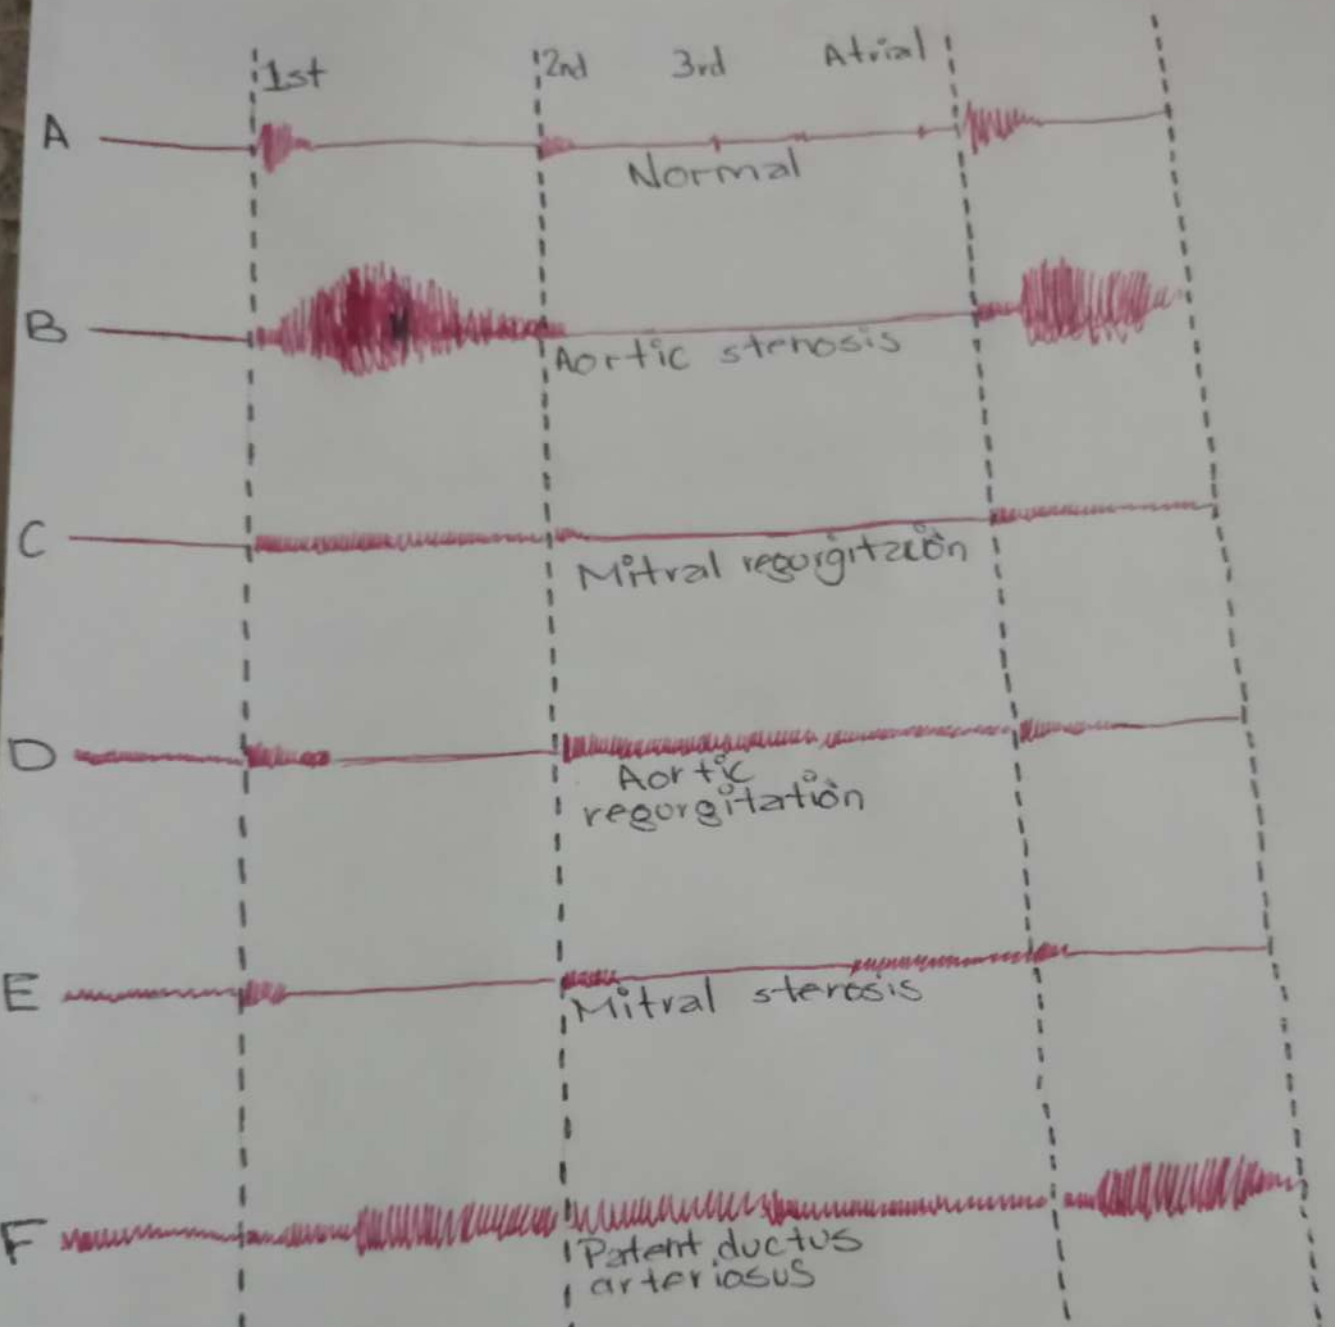 1st 2nd 3rd Atrial
A
Normal
B
Aortic stenosis
C
Mitral regurgitation
D
Aortic
regurgitation
E
Mitral stenosis
F
Patent ductus
arteriosus